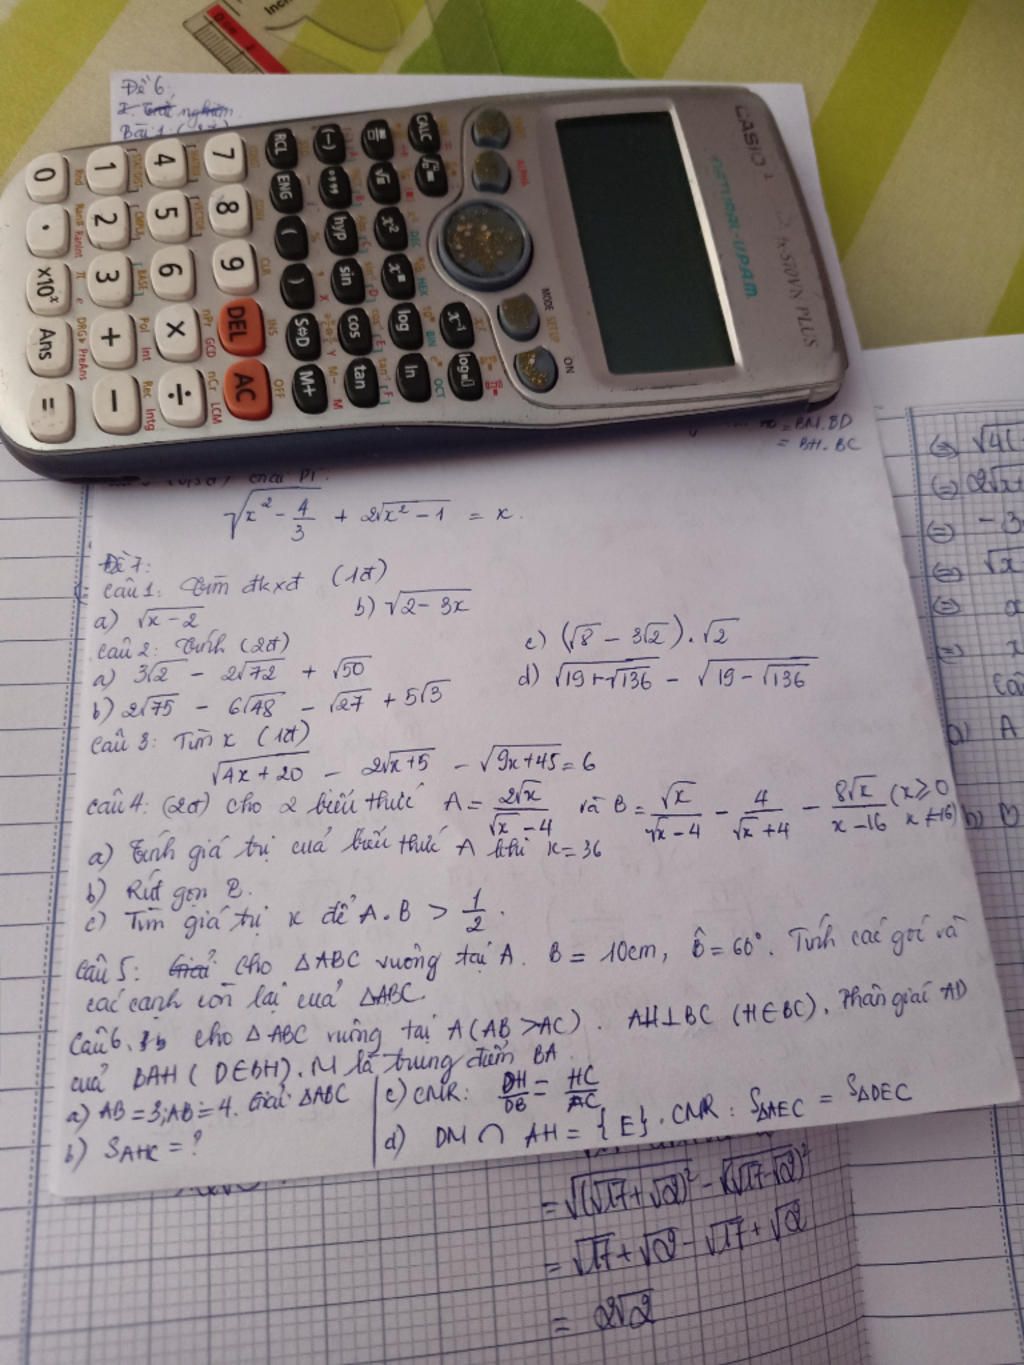 Đề 6:
Bài 1:
CASIO
fx-570VN PLUS
NATURAL-V.P.A.M.
CALC
(-)
RCL
ENG
hyp
sin
cos
tan
log
ln
(
)
S⇔D
M+
7 8 9 DEL AC
4 5 6 × ÷
1 2 3 + −
0 . ×10ˣ Ans =
MODE SETUP
ON
= BM.BD
= BH.BC
√(x² - 4/3) + 2√(x² - 1) = x.
Đề 7:
Câu 1: Tìm đkxđ (1đ)
a) √(x - 2)
b) √(2 - 3x)
Câu 2: Tính (2đ)
a) 3√2 - 2√72 + √50
c) (√8 - 3√2).√2
b) 2√75 - 6√48 - √27 + 5√3
d) √(19 + √136) - √(19 - √136)
Câu 3: Tìm x (1đ)
√(4x + 20) - 2√(x + 5) - √(9x + 45) = 6
Câu 4: (2đ) cho 2 biểu thức A = 2√x/(√x - 4) và B = √x/(√x - 4) - 4/(√x + 4) - 8√x/(x - 16) (x ≥ 0 x ≠ 16)
a) Tính giá trị của biểu thức A khi x = 36
b) Rút gọn B.
c) Tìm giá trị x để A.B > 1/2.
Câu 5: Cho △ABC vuông tại A. B = 10cm, B̂ = 60°. Tính các góc và
các cạnh còn lại của △ABC.
Câu 6. cho △ABC vuông tại A (AB > AC). AH⊥BC (H∈BC). Phân giác AD
của BAH (D∈BH). M là trung điểm BA
a) AB = 3; AB = 4. Giải △ABC
b) S_AHC = ?
c) CMR: DH/DB = HC/AC
d) DM ∩ AH = {E}. CMR: S△AEC = S△DEC
= √((√17 + √2)²) - √((√17 - √2)²)
= √17 + √2 - √17 + √2
= 2√2